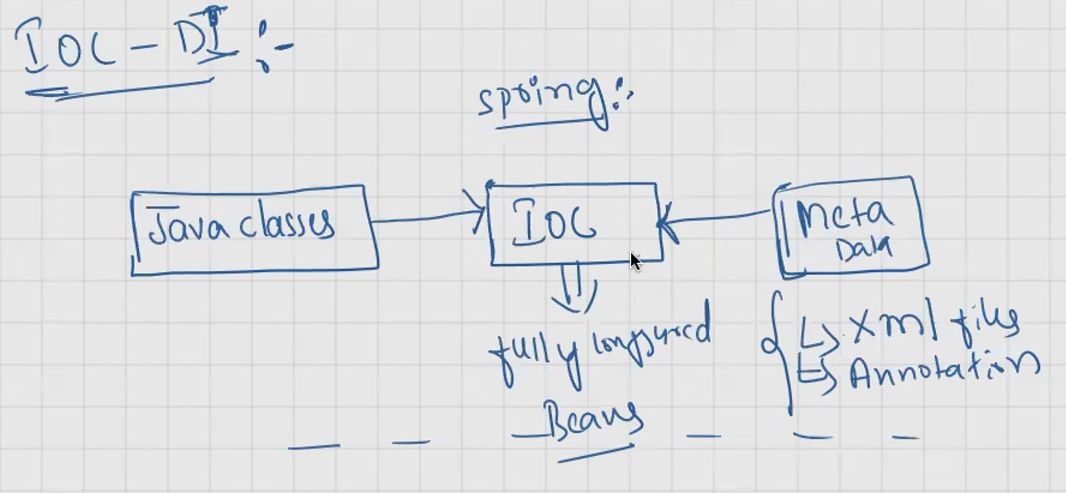 IOC - DI :-
spring :-
Java classes
IOC
Meta
Data
fully configured
Beans
↳ Xml files
↳ Annotation